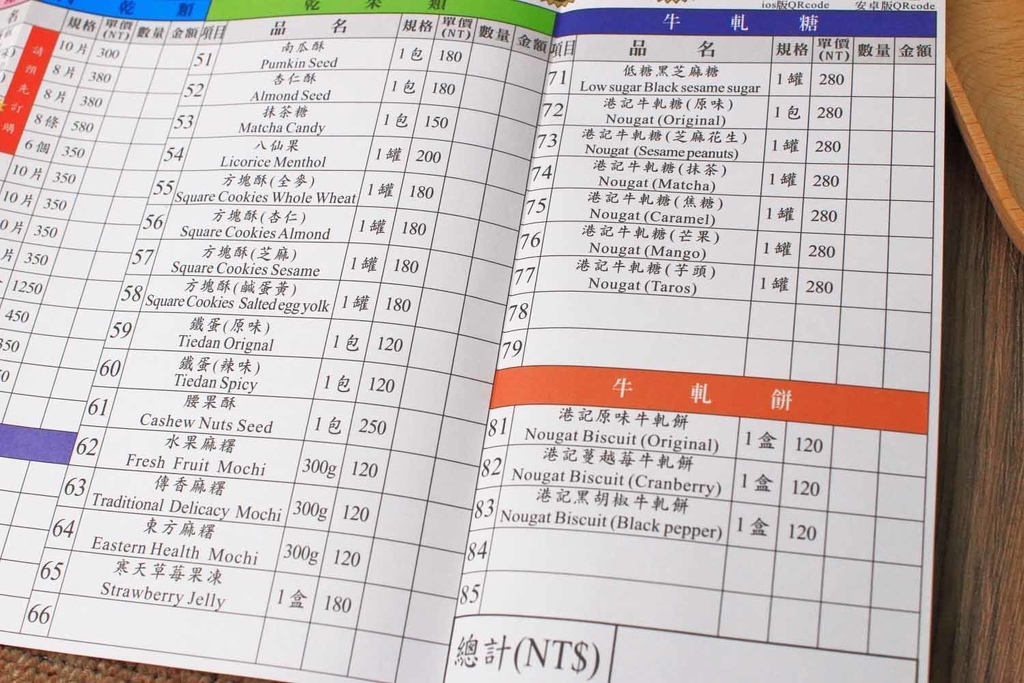 乾 類
規格 單價(NT) 數量 金額
請預先訂購
10片 300
8片 380
8片 380
8條 580
6個 350
10片 350
10片 350
350
350
1250
450
乾 果 類
項目 品 名 規格 單價(NT) 數量 金額
51 南瓜酥 1包 180
Pumkin Seed
52 杏仁酥 1包 180
Almond Seed
53 抹茶糖 1包 150
Matcha Candy
54 八仙果 1罐 200
Licorice Menthol
55 方塊酥(全麥) 1罐 180
Square Cookies Whole Wheat
56 方塊酥(杏仁) 1罐 180
Square Cookies Almond
57 方塊酥(芝麻) 1罐 180
Square Cookies Sesame
58 方塊酥(鹹蛋黃) 1罐 180
Square Cookies Salted egg yolk
59 鐵蛋(原味) 1包 120
Tiedan Orignal
60 鐵蛋(辣味) 1包 120
Tiedan Spicy
61 腰果酥 1包 250
Cashew Nuts Seed
62 水果麻糬 300g 120
Fresh Fruit Mochi
63 傳香麻糬 300g 120
Traditional Delicacy Mochi
64 東方麻糬 300g 120
Eastern Health Mochi
65 寒天草莓果凍 1盒 180
Strawberry Jelly
66
ios版QRcode 安卓版QRcode
牛 軋 糖
項目 品 名 規格 單價(NT) 數量 金額
71 低糖黑芝麻糖 1罐 280
Low sugar Black sesame sugar
72 港記牛軋糖(原味) 1包 280
Nougat (Original)
73 港記牛軋糖(芝麻花生) 1罐 280
Nougat (Sesame peanuts)
74 港記牛軋糖(抹茶) 1罐 280
Nougat (Matcha)
75 港記牛軋糖(焦糖) 1罐 280
Nougat (Caramel)
76 港記牛軋糖(芒果) 1罐 280
Nougat (Mango)
77 港記牛軋糖(芋頭) 1罐 280
Nougat (Taros)
78
79
牛 軋 餅
81 港記原味牛軋餅 1盒 120
Nougat Biscuit (Original)
82 港記蔓越莓牛軋餅 1盒 120
Nougat Biscuit (Cranberry)
83 港記黑胡椒牛軋餅 1盒 120
Nougat Biscuit (Black pepper)
84
85
總計(NT$)